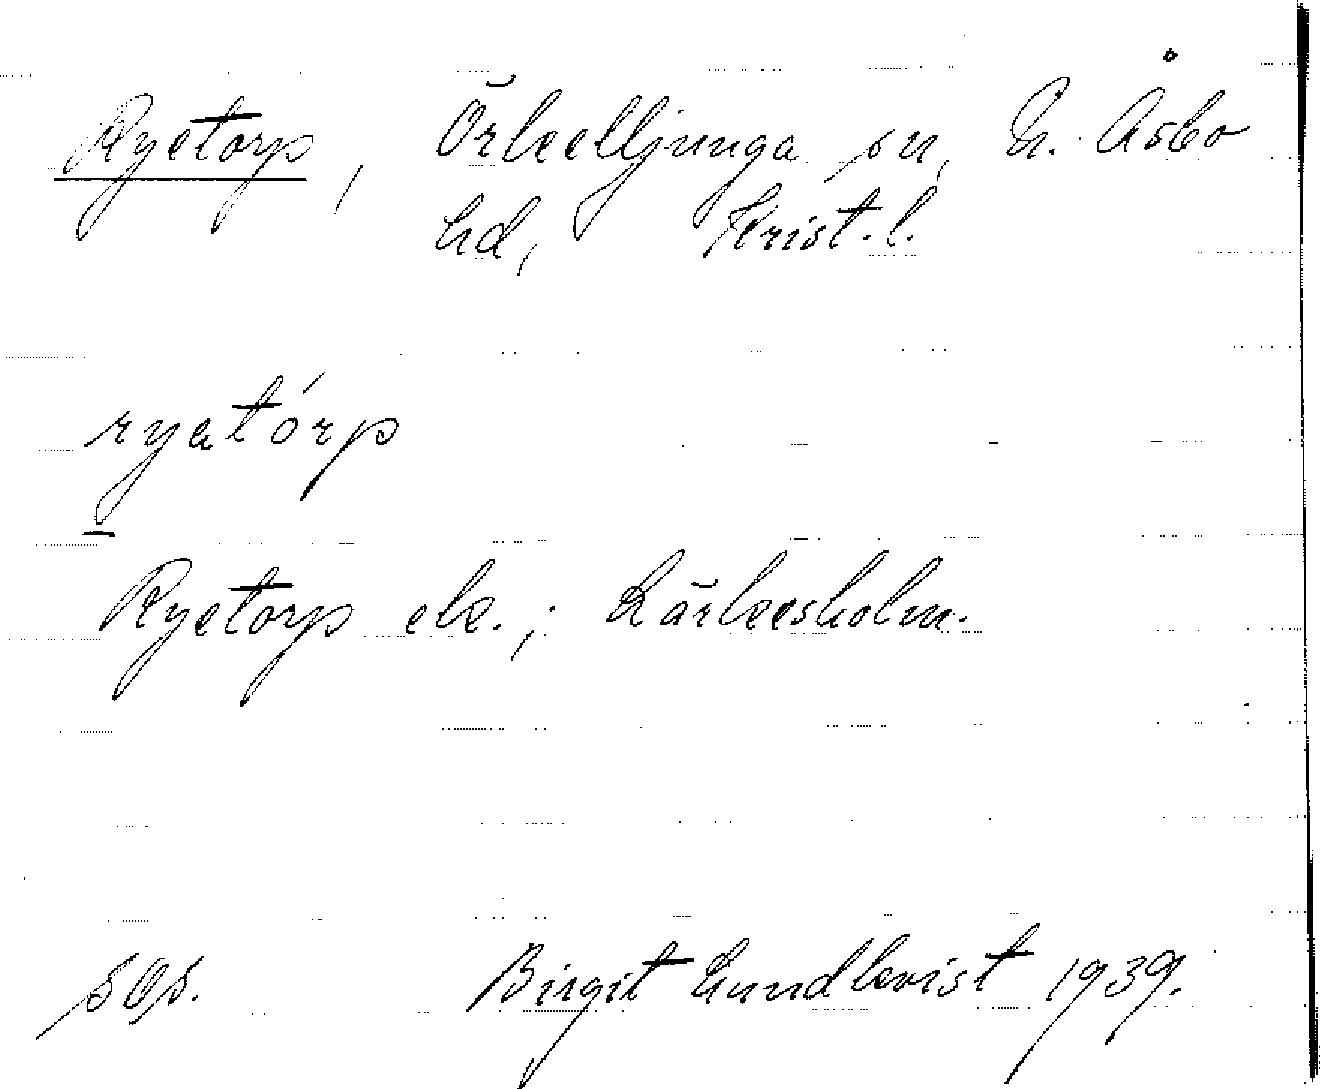 Ryetorp, Örkelljunga sn, N. Åsbo
hd, Krist. l.
ryatórp
Ryetorp ek.; Kärleksholm.
sOs. Birgit Lundkvist 1939.